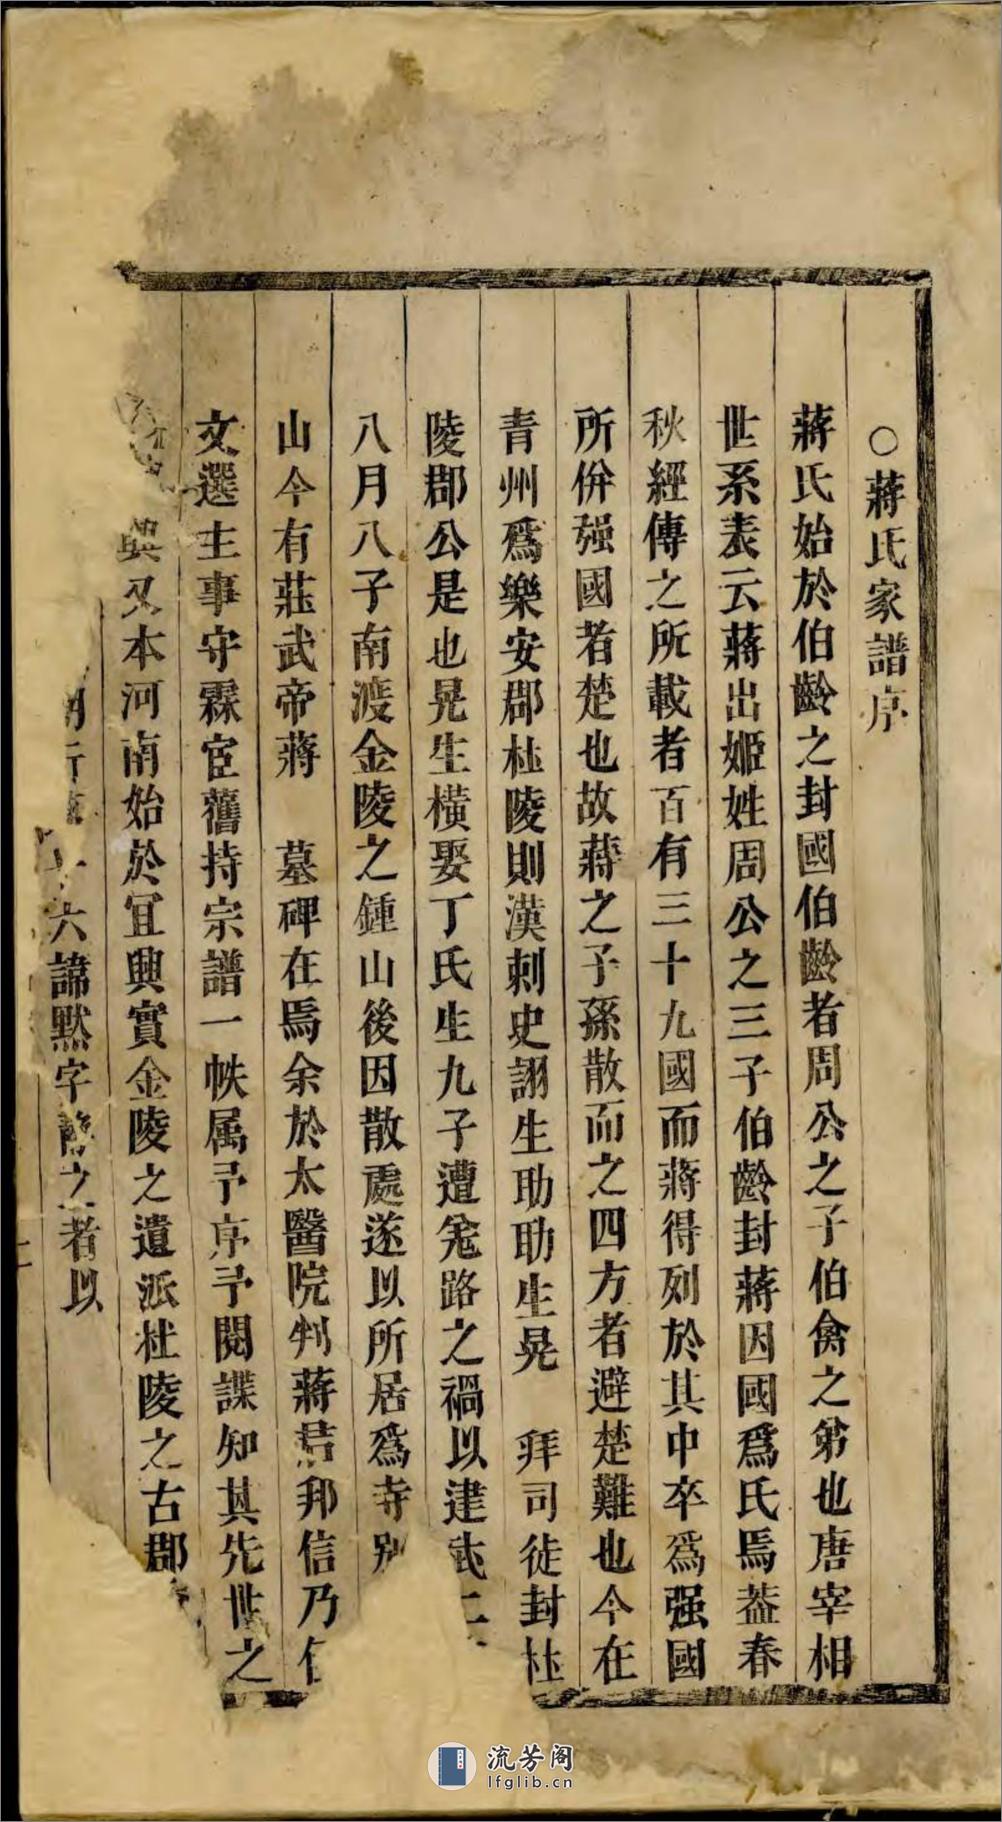 ○蔣氏家譜序
蔣氏始於伯齡之封國伯齡者周公之子伯禽之弟也唐宰相
世系表云蔣出姬姓周公之三子伯齡封蔣因國爲氏焉葢春
秋經傳之所載者百有三十九國而蔣得列於其中卒爲强國
所併强國者楚也故蔣之子孫散而之四方者避楚難也今在
青州爲樂安郡杜陵則漢刺史詡生助助生晃　拜司徒封杜
陵郡公是也晃生橫娶丁氏生九子遭兔路之禍以建武二
八月八子南渡金陵之鍾山後因散處遂以所居爲寺别
山今有莊武帝蔣　墓碑在焉余於太醫院判蔣君邦信乃
文選主事守霖宦舊持宗譜一帙属予序予閱諜知其先世之
與又本河南始於宜興實金陵之遺派杜陵之古郡
六諱黙字之者以
流芳阁
lfglib.cn